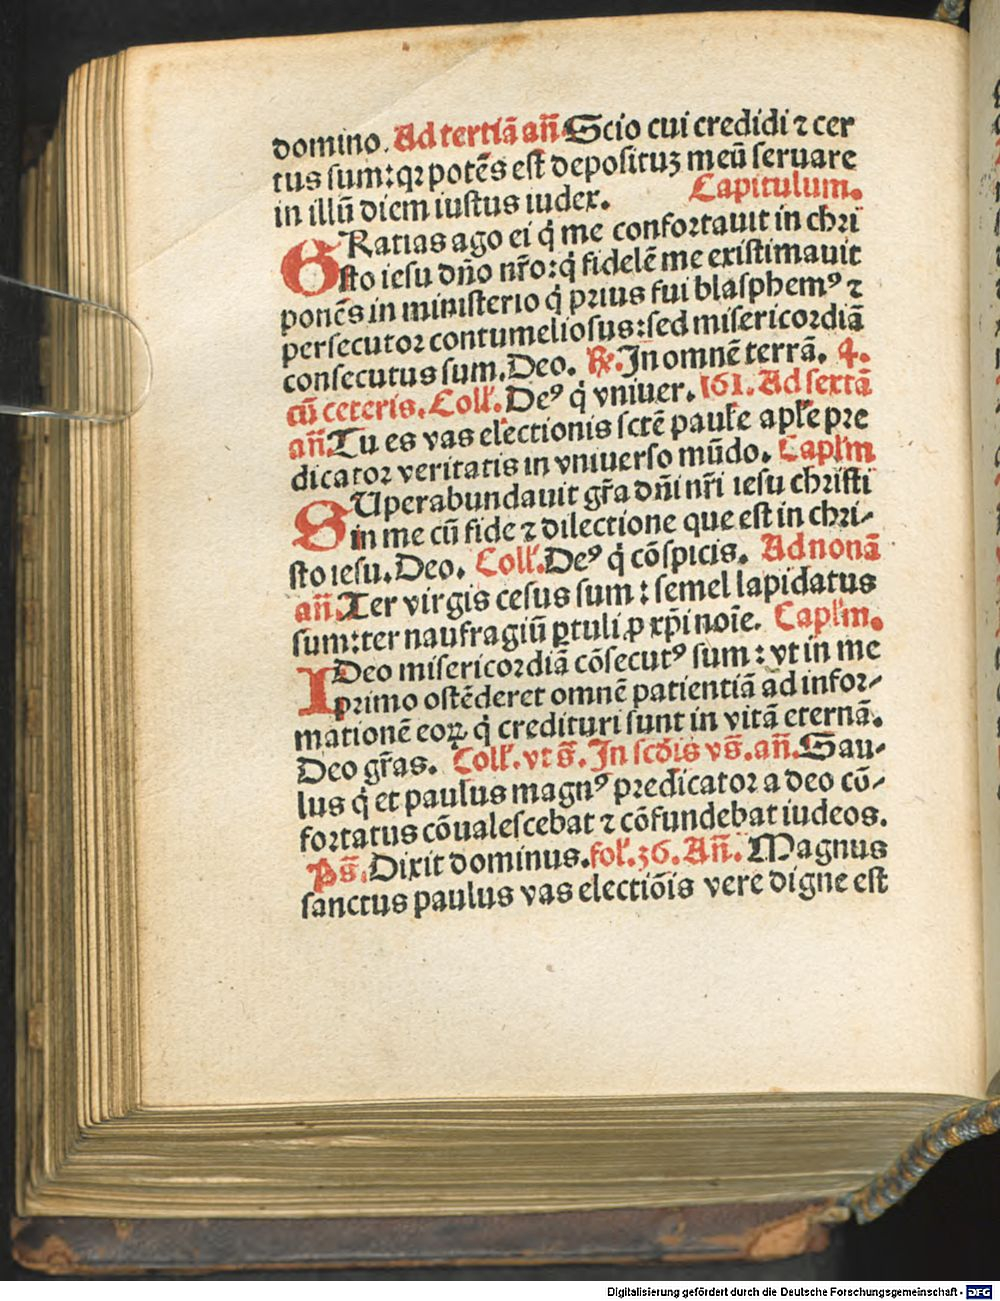 domino. Ad tertiã añ Scio cui credidi ⁊ cer
tus sum: qꝛ potẽs est deposituȝ meũ seruare
in illũ diem iustus iudex. Capitulum.
GRatias ago ei q̇ me confortauit in chꝛi
sto iesu dño nr̃o: q̇ fidelẽ me existimauit
ponẽs in ministerio q̇ pꝛius fui blasphemꝰ ⁊
persecutoꝛ contumeliosus: sed misericoꝛdiã
consecutus sum. Deo. ℟. In omnẽ terrã. 4.
cũ ceteris. Coll'. Deꝰ q̇ vniuer. 161. Ad sextã
añ. Tu es vas electionis sctẽ paule aple pꝛe
dicatoꝛ veritatis in vniuerso mũdo. Caplm
SUperabundauit gr̃a dñi nr̃i iesu christi
in me cũ fide ⁊ dilectione que est in chꝛi-
sto iesu. Deo. Coll'. Deꝰ q̇ cõspicis. Ad nonã
añ. Ter virgis cesus sum: semel lapidatus
sum: ter naufragiũ ꝑtuli ꝓ xp̃i noĩe. Caplm.
IDeo misericoꝛdiã cõsecutꝰ sum: vt in me
pꝛimo ostẽderet omnẽ patientiã ad infoꝛ-
mationẽ eoꝝ q̇ credituri sunt in vitã eternã.
Deo gr̃as. Coll'. vt s̃. In scðis vs̃. añ. Sau-
lus q̇ et paulus magnꝰ pꝛedicatoꝛ a deo cõ-
foꝛtatus cõualescebat ⁊ cõfundebat iudeos.
Ps̃. Dixit dominus. fol'. 36. Añ. Magnus
sanctus paulus vas electiõis vere digne est
Digitalisierung gefördert durch die Deutsche Forschungsgemeinschaft - DFG